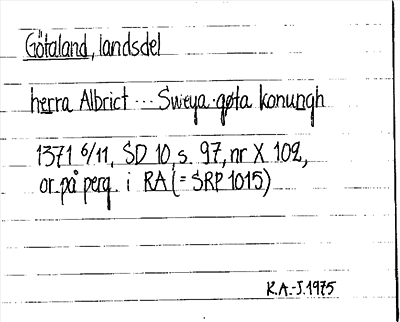 Götaland, landsdel
herra Albrict --- Sweya. gøta konungh
1371 6/11, SD 10, s. 97, nr X 102,
or. på perg. i RA (= SRP 1015)
R.A.-J. 1975